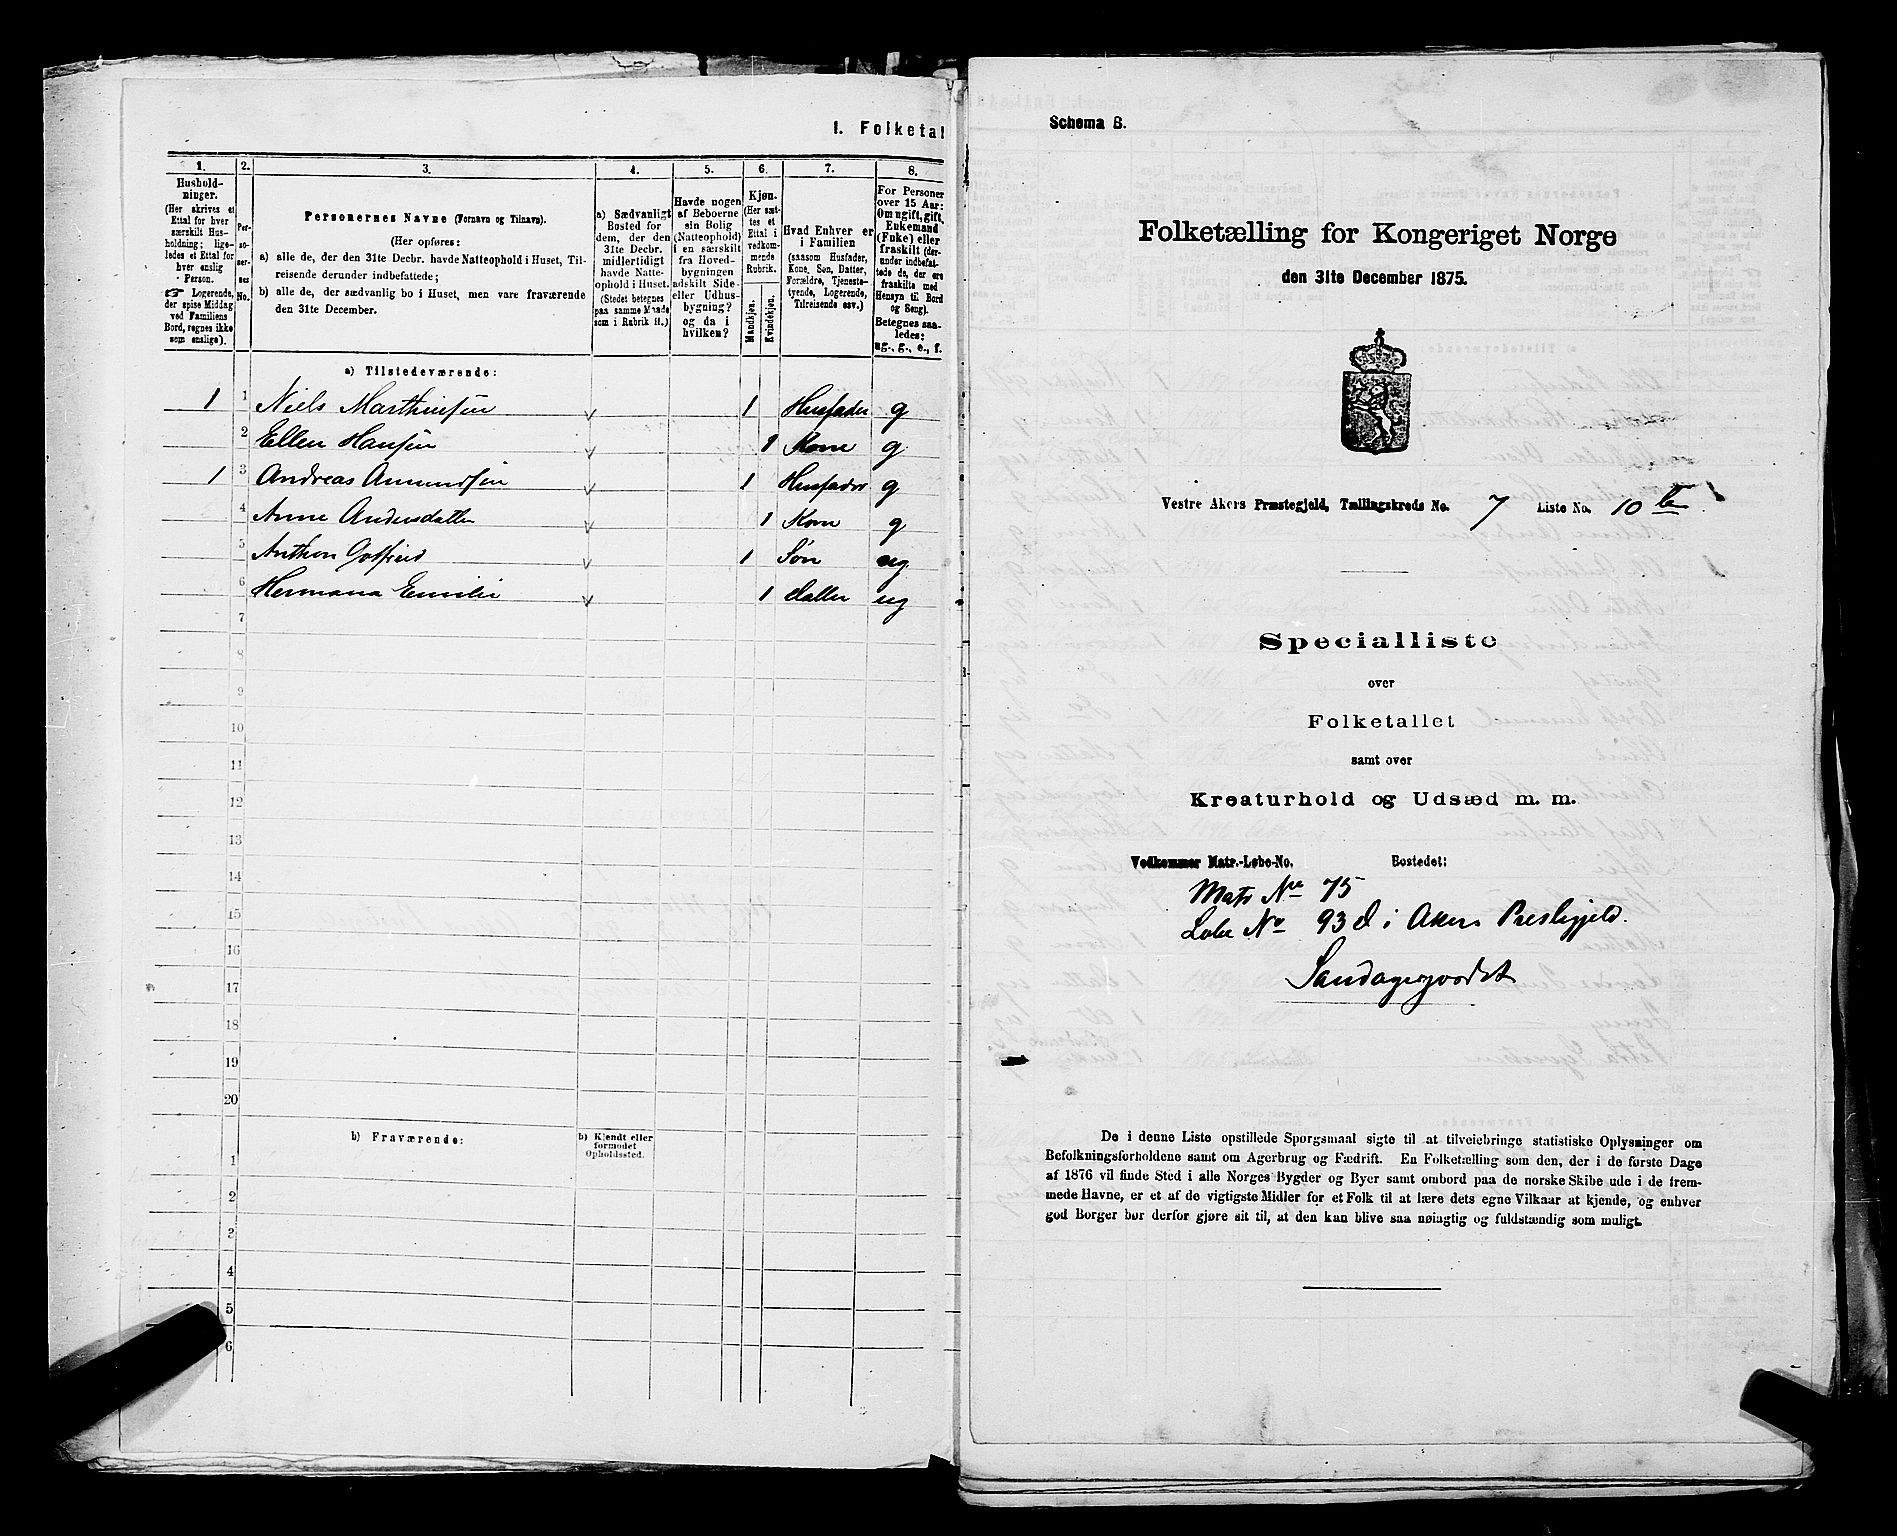 I. Folketal
1.
Husholdninger.
(Her skrives et
Ettal for hver
særskilt Hus-
holdning; lige-
ledes et Ettal for
hver enslig
Person.
☞ Logerende,
der spise Middag
ved Familiens
Bord, regnes ikke
som enslige).
2.
Per-
so-
ner-
nes
No.
3.
Personernes Navne (Fornavn og Tilnavn).
(Her opføres:
a) alle de, der den 31te Decbr. havde Natteophold i Huset, Til-
reisende derunder indbefattede;
b) alle de, der sædvanlig bo i Huset, men vare fraværende
den 31te December.
4.
a) Sædvanligt
Bosted for
dem, der den
31te Decbr.
midlertidigt
havde Natte-
ophold i Huset.
(Stedet betegnes
paa samme Maade
som i Rubrik 11.)
5.
Havde nogen
af Beboerne
sin Bolig
(Natteophold)
i en særskilt
fra Hoved-
bygningen
adskilt Side-
eller Udhus-
bygning?
og da i
hvilken?
6.
Kjøn.
(Her sæt-
tes et
Ettal i
vedkom-
mende
Rubrik.
Mandkjøn.
Kvindekjøn.
7.
Hvad Enhver er
i Familien
(saasom Husfader,
Kone, Søn, Datter,
Forældre, Tjeneste-
tyende, Logerende,
Tilreisende osv.)
8.
For Personer
over 15 Aar:
Om ugift, gift,
Enkemand
(Enke) eller
fraskilt (der-
under indbefat-
tede de, der ere
fraskilte med
Hensyn til Bord
og Seng).
Betegnes saa-
ledes:
ug., g., e., f.
a) Tilstedeværende:
1 1 Niels Marthinsen 1 Husfader g
2 Ellen Hansen 1 Kone g
1 3 Andreas Amundsen 1 Husfader g
4 Anne Andersdatter 1 Kone g
5 Anthon Gotfried 1 Søn ug
6 Hermana Emilie 1 datter ug
7
8
9
10
11
12
13
14
15
16
17
18
19
20
b) Fraværende:
b) Kjendt eller
formodet
Opholdssted.
1
2
3
4
5
6
Schema B.
Folketælling for Kongeriget Norge
den 31te December 1875.
Vestre Akers Præstegjeld, Tællingskreds No. 7 Liste No. 10
Specialliste
over
Folketallet
samt over
Kreaturhold og Udsæd m. m.
Vedkommer Matr.-Løbe-No. Bostedet:
Matr No 75
Løbe No 93 d i Akers Prestegjeld.
Sandagergordet
De i denne Liste opstillede Spørgsmaal sigte til at tilveiebringe statistiske Oplysninger om
Befolkningsforholdene samt om Agerbrug og Fædrift. En Folketælling som den, der i de første Dage
af 1876 vil finde Sted i alle Norges Bygder og Byer samt ombord paa de norske Skibe ude i de frem-
mede Havne, er et af de vigtigste Midler for et Folk til at lære dets egne Vilkaar at kjende, og enhver
god Borger bør derfor gjøre sit til, at den kan blive saa nøiagtig og fuldstændig som muligt.